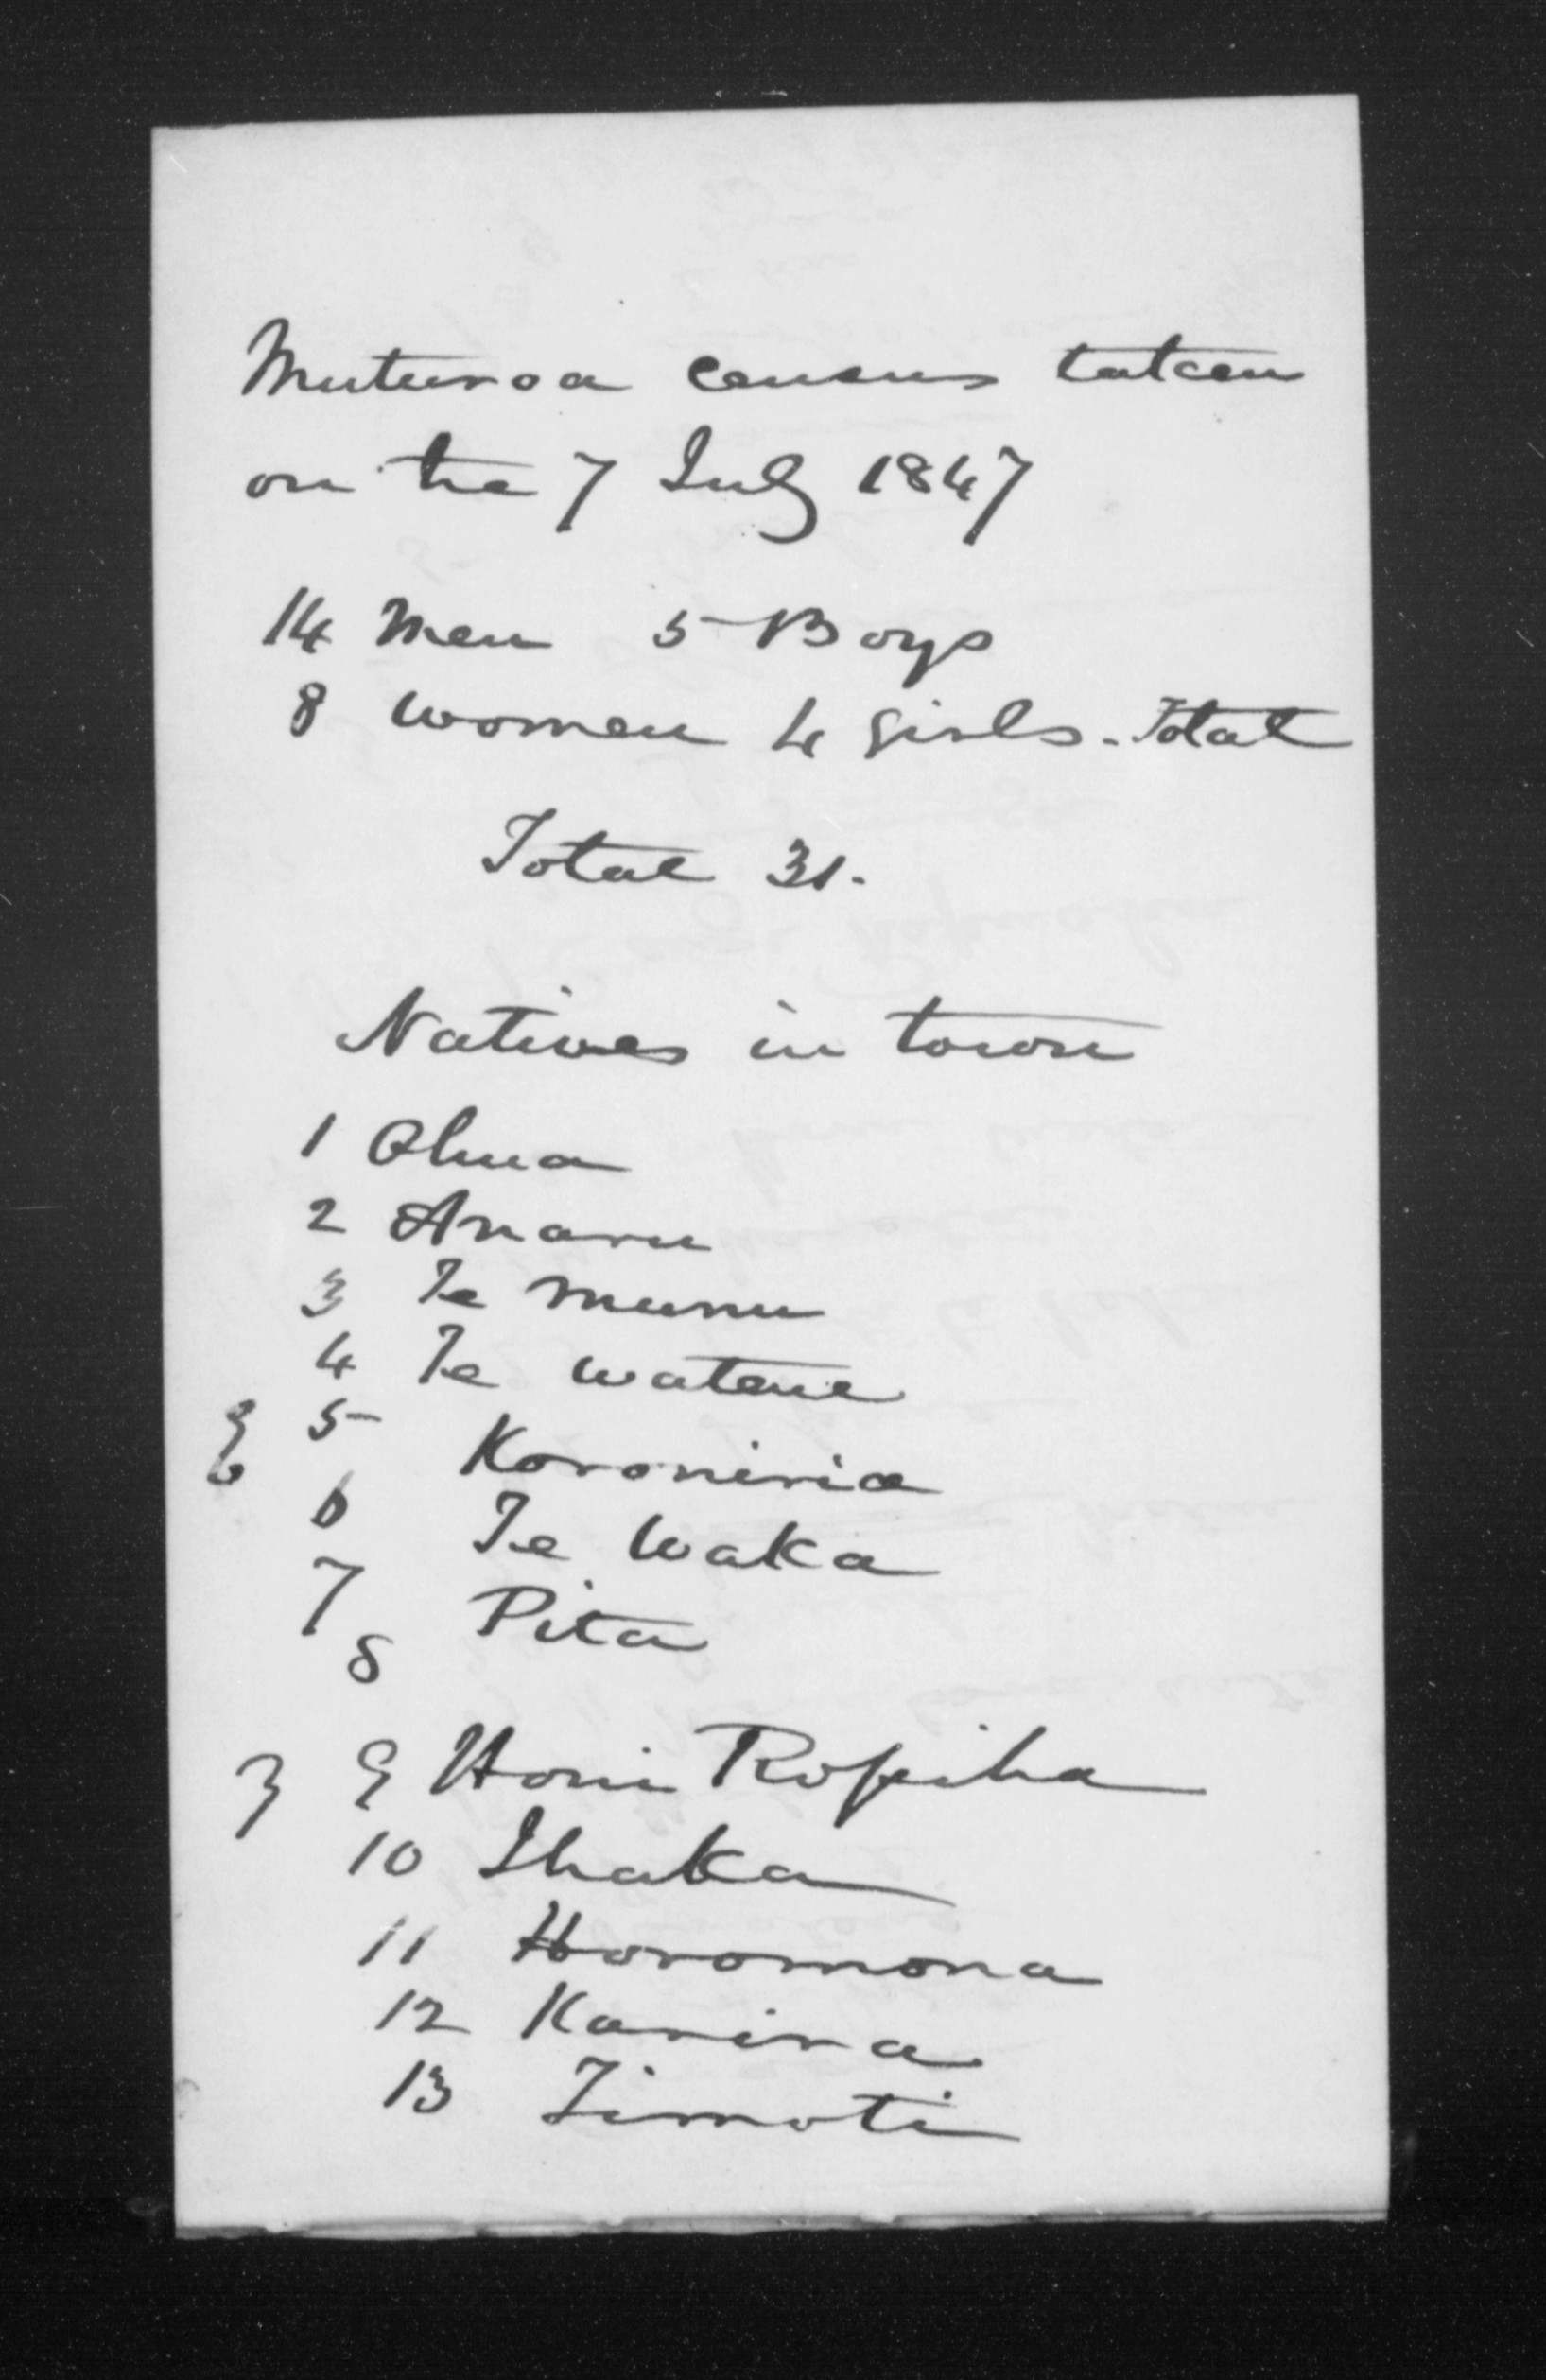 Muturoa census taken
on the 7 July 1847
14 Men 5 Boys
8 women 4 girls. Total
Total 31.
Natives in town
1 Ohua
2 Anaru
3 Te munu
4 Te watene
5 Koroniria
6 Te Waka
7 Pita
8
9 Honi Ropiha
10 Ihaka
11 Horomona
12 Karira
13 Timoti